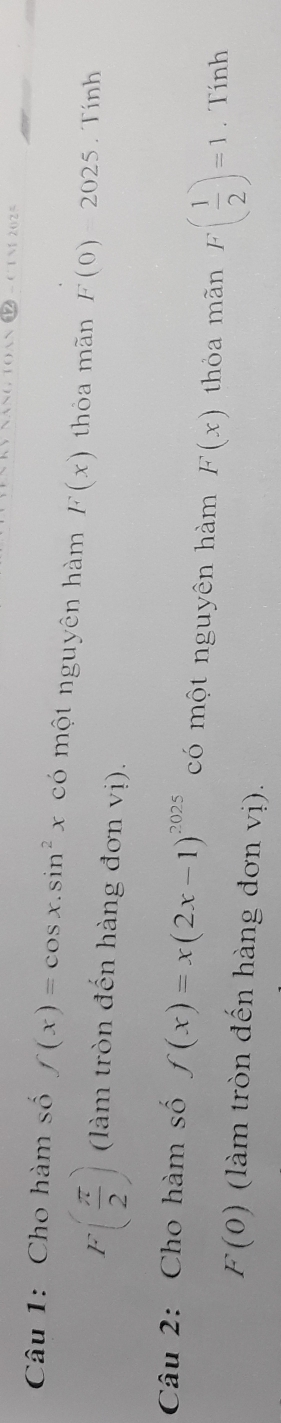 NĂNG TOÁN 12 - CTM 2025
Câu 1: Cho hàm số f(x) = cos x.sin² x có một nguyên hàm F(x) thỏa mãn F(0) = 2025. Tính
F(π/2) (làm tròn đến hàng đơn vị).
Câu 2: Cho hàm số f(x) = x(2x − 1)²⁰²⁵ có một nguyên hàm F(x) thỏa mãn F(1/2) = 1. Tính
F(0) (làm tròn đến hàng đơn vị).